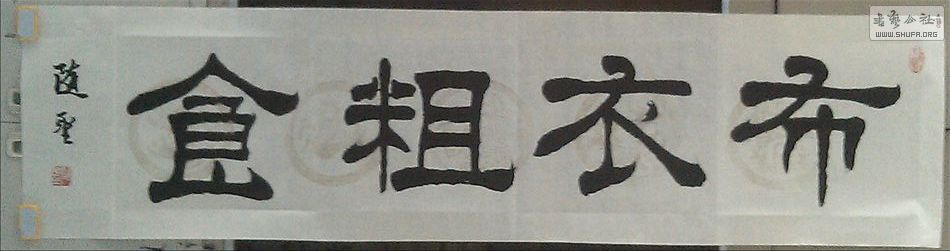 布衣粗食
随聖
书艺公社
WWW.SHUFA.ORG